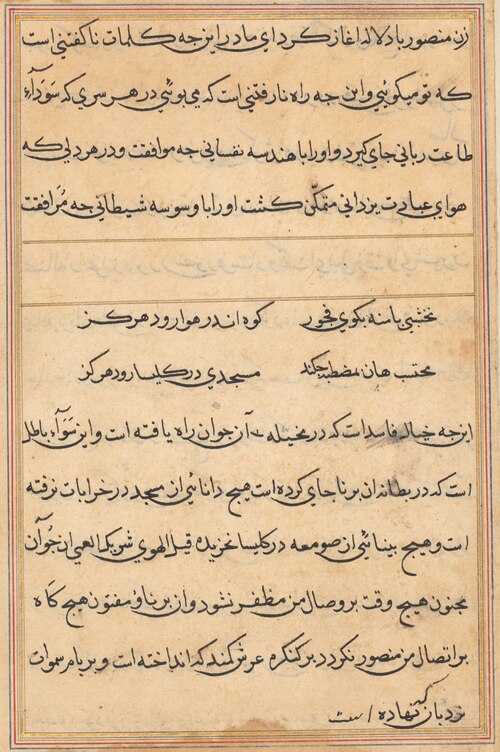 زن منصور با دلاله اغاز کرد ای مادر این چه کلمات ناگفتنی است
که تو میگوئی و این چه راه نارفتنی است که می پوئی در هر سری که سودآء
طاعت ربانی جای گیرد و او را با هندسه نفسانی چه موافقت و در هر دلی که
هوای عبادت یزدانی متمکّن گشت او را با وسوسه شیطانی چه مُرافقت
نخشبی پا منه بکوی فجور کوه اندر هوا رود هرگز
محتسب هان بمصطبه چکند مسجدی در کلیسا رود هرگز
این چه خیال فاسد است که در مخیله آن جوان راه یافته است و این سَوآء باطل
است که در بطلدان برنا جای کرده است هیچ دانائی از مسجد در خرابات نرفته
است و هیچ بینائی از صومعه در کلیسا نخزیده قیل الهوی شریک العمی ان جوآن
مجنون هیچ وقت بر وصال من مظفر نشود و ان برناو مفتون هیچ کاه
بر اتصال من منصور نکردد بر کنکره عرش کمند که انداخته است و بر بام سموات
نردبان که نهاده است